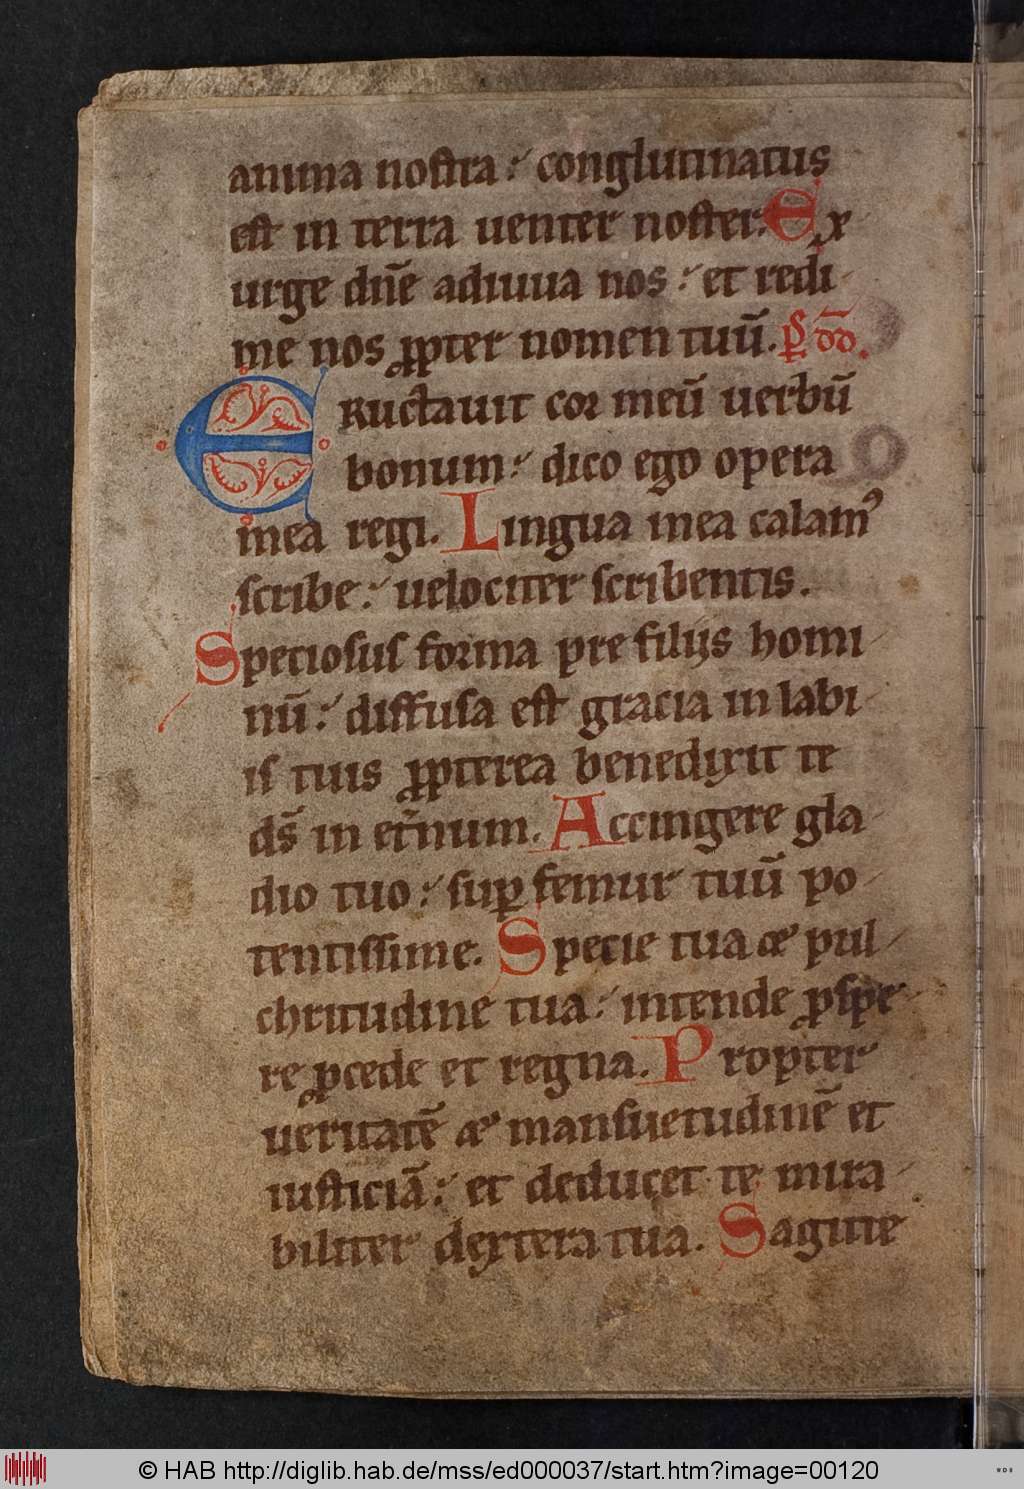 anima nostra: conglutinatus
est in terra uenter noster. Ex
urge dn̄e adiuua nos: et redi
me nos ꝓpter nomen tuū. p̄s dd̄.
ERuctauit cor meū uerbū
bonum: dico ego opera
mea regi. Lingua mea calamꝰ
scribe: uelociter scribentis.
Speciosus forma pre filijs homi
nū: diffusa est gracia in labi
is tuis ꝓpterea benedixit te
ds̄ in et̄num. Accingere gla
dio tuo: suꝑ femur tuū po
tentissime. Specie tua & pul
chritudine tua: intende ꝓspe
re ꝓcede et regna. Propter
ueritatē & mansuetudinē et
iusticiā: et deducet te mira
biliter dextera tua. Sagitte
© HAB http://diglib.hab.de/mss/ed000037/start.htm?image=00120